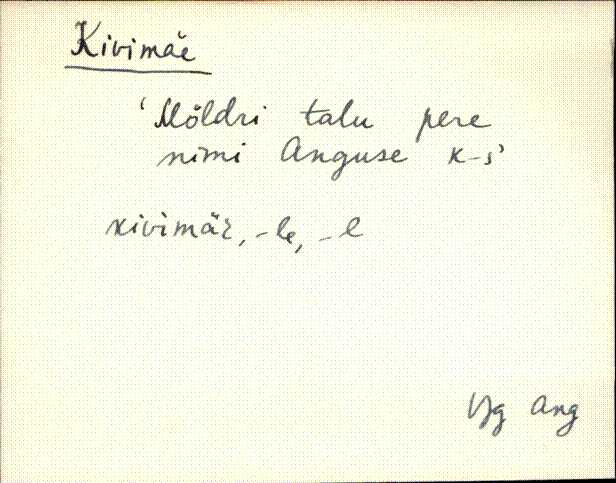 Kivimäe
'Möldri talu pere
nimi Anguse k-s'
kivimäe, -le, -l
Vjg Ang